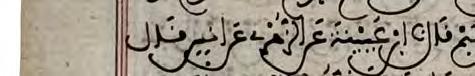 ثم قال ابن عيينة عن الزهري عن انس قال